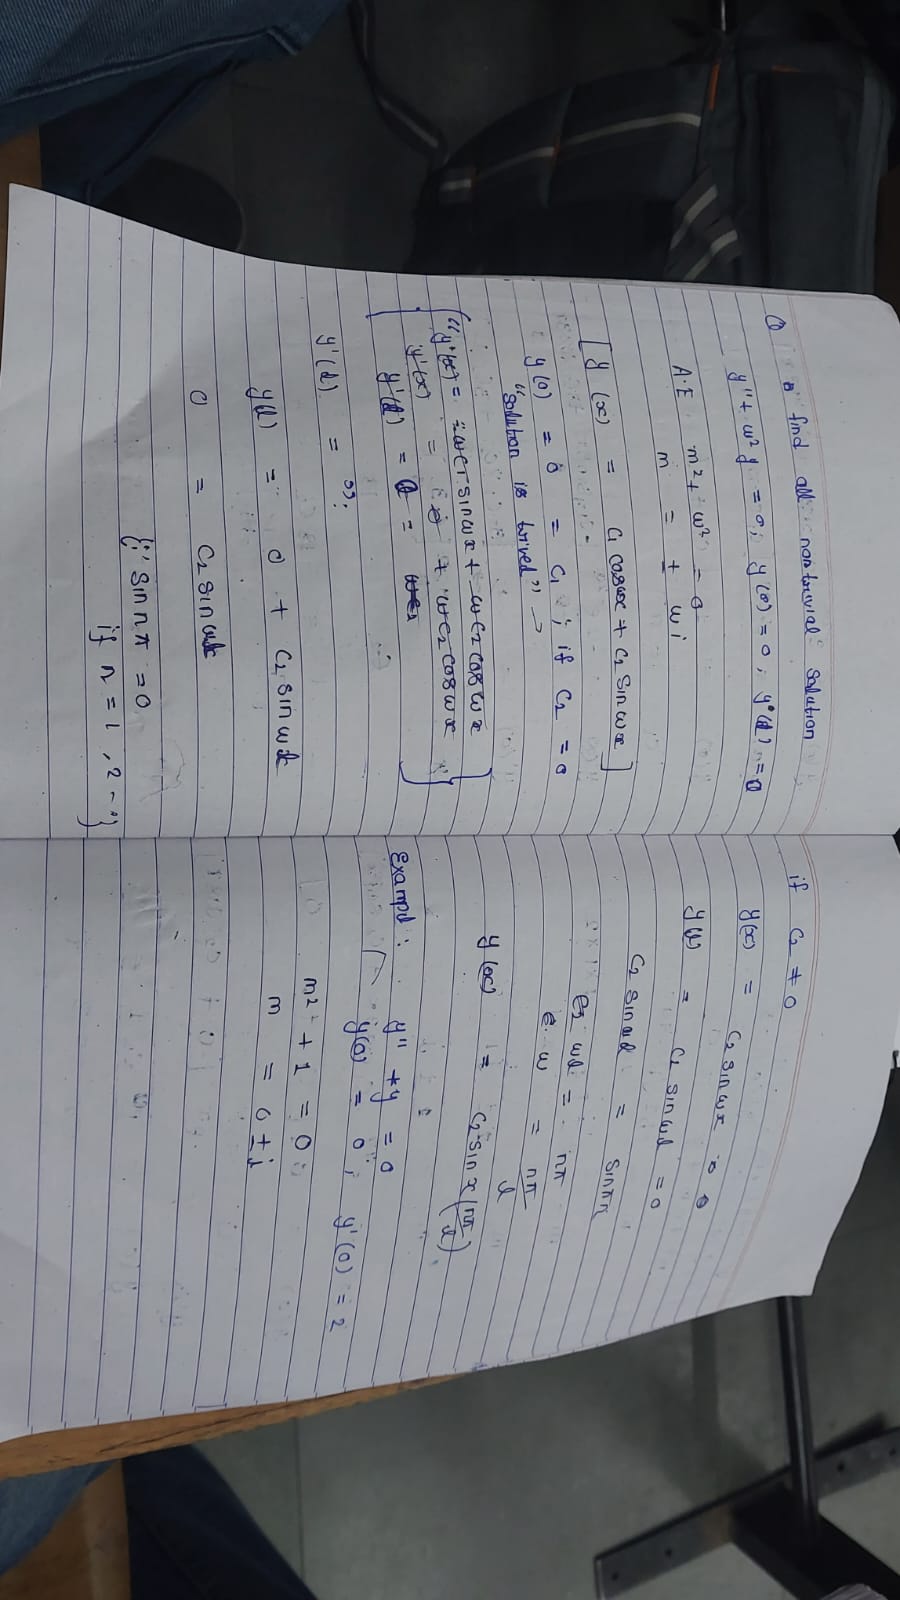 Q find all nontrivial solution
y'' + ω² y = 0; y(0) = 0, y(l) = 0
A.E m² + ω² = 0
m = ± ωi
[y (x) = C₁ cosωx + C₂ sin ωx]
y(0) = 0 = C₁ ; if C₂ = 0
"solution is trived"
"y'(x) = -ωC₁ sinωx + ωC₂ cosωx
y'(x) = 0 + ωC₂ cosωx
y'(l) = 0 = ωC₂
y'(l) = ";
y(l) = 0 + C₂ sin ωl
0 = C₂ sin ωl
{∵ sin nπ = 0
if n = 1, 2 --}
if C₂ ≠ 0
y(x) = C₂ sin ωx
y(l) = C₂ sin ωl = 0
C₂ sin ωl = sin nπ
ωl = nπ
ω = nπ/l
y(x) = C₂ sin x(nπ/l)
Exampl : y'' + y = 0
y(0) = 0 ; y'(0) = 2
m² + 1 = 0
m = 0 ± i